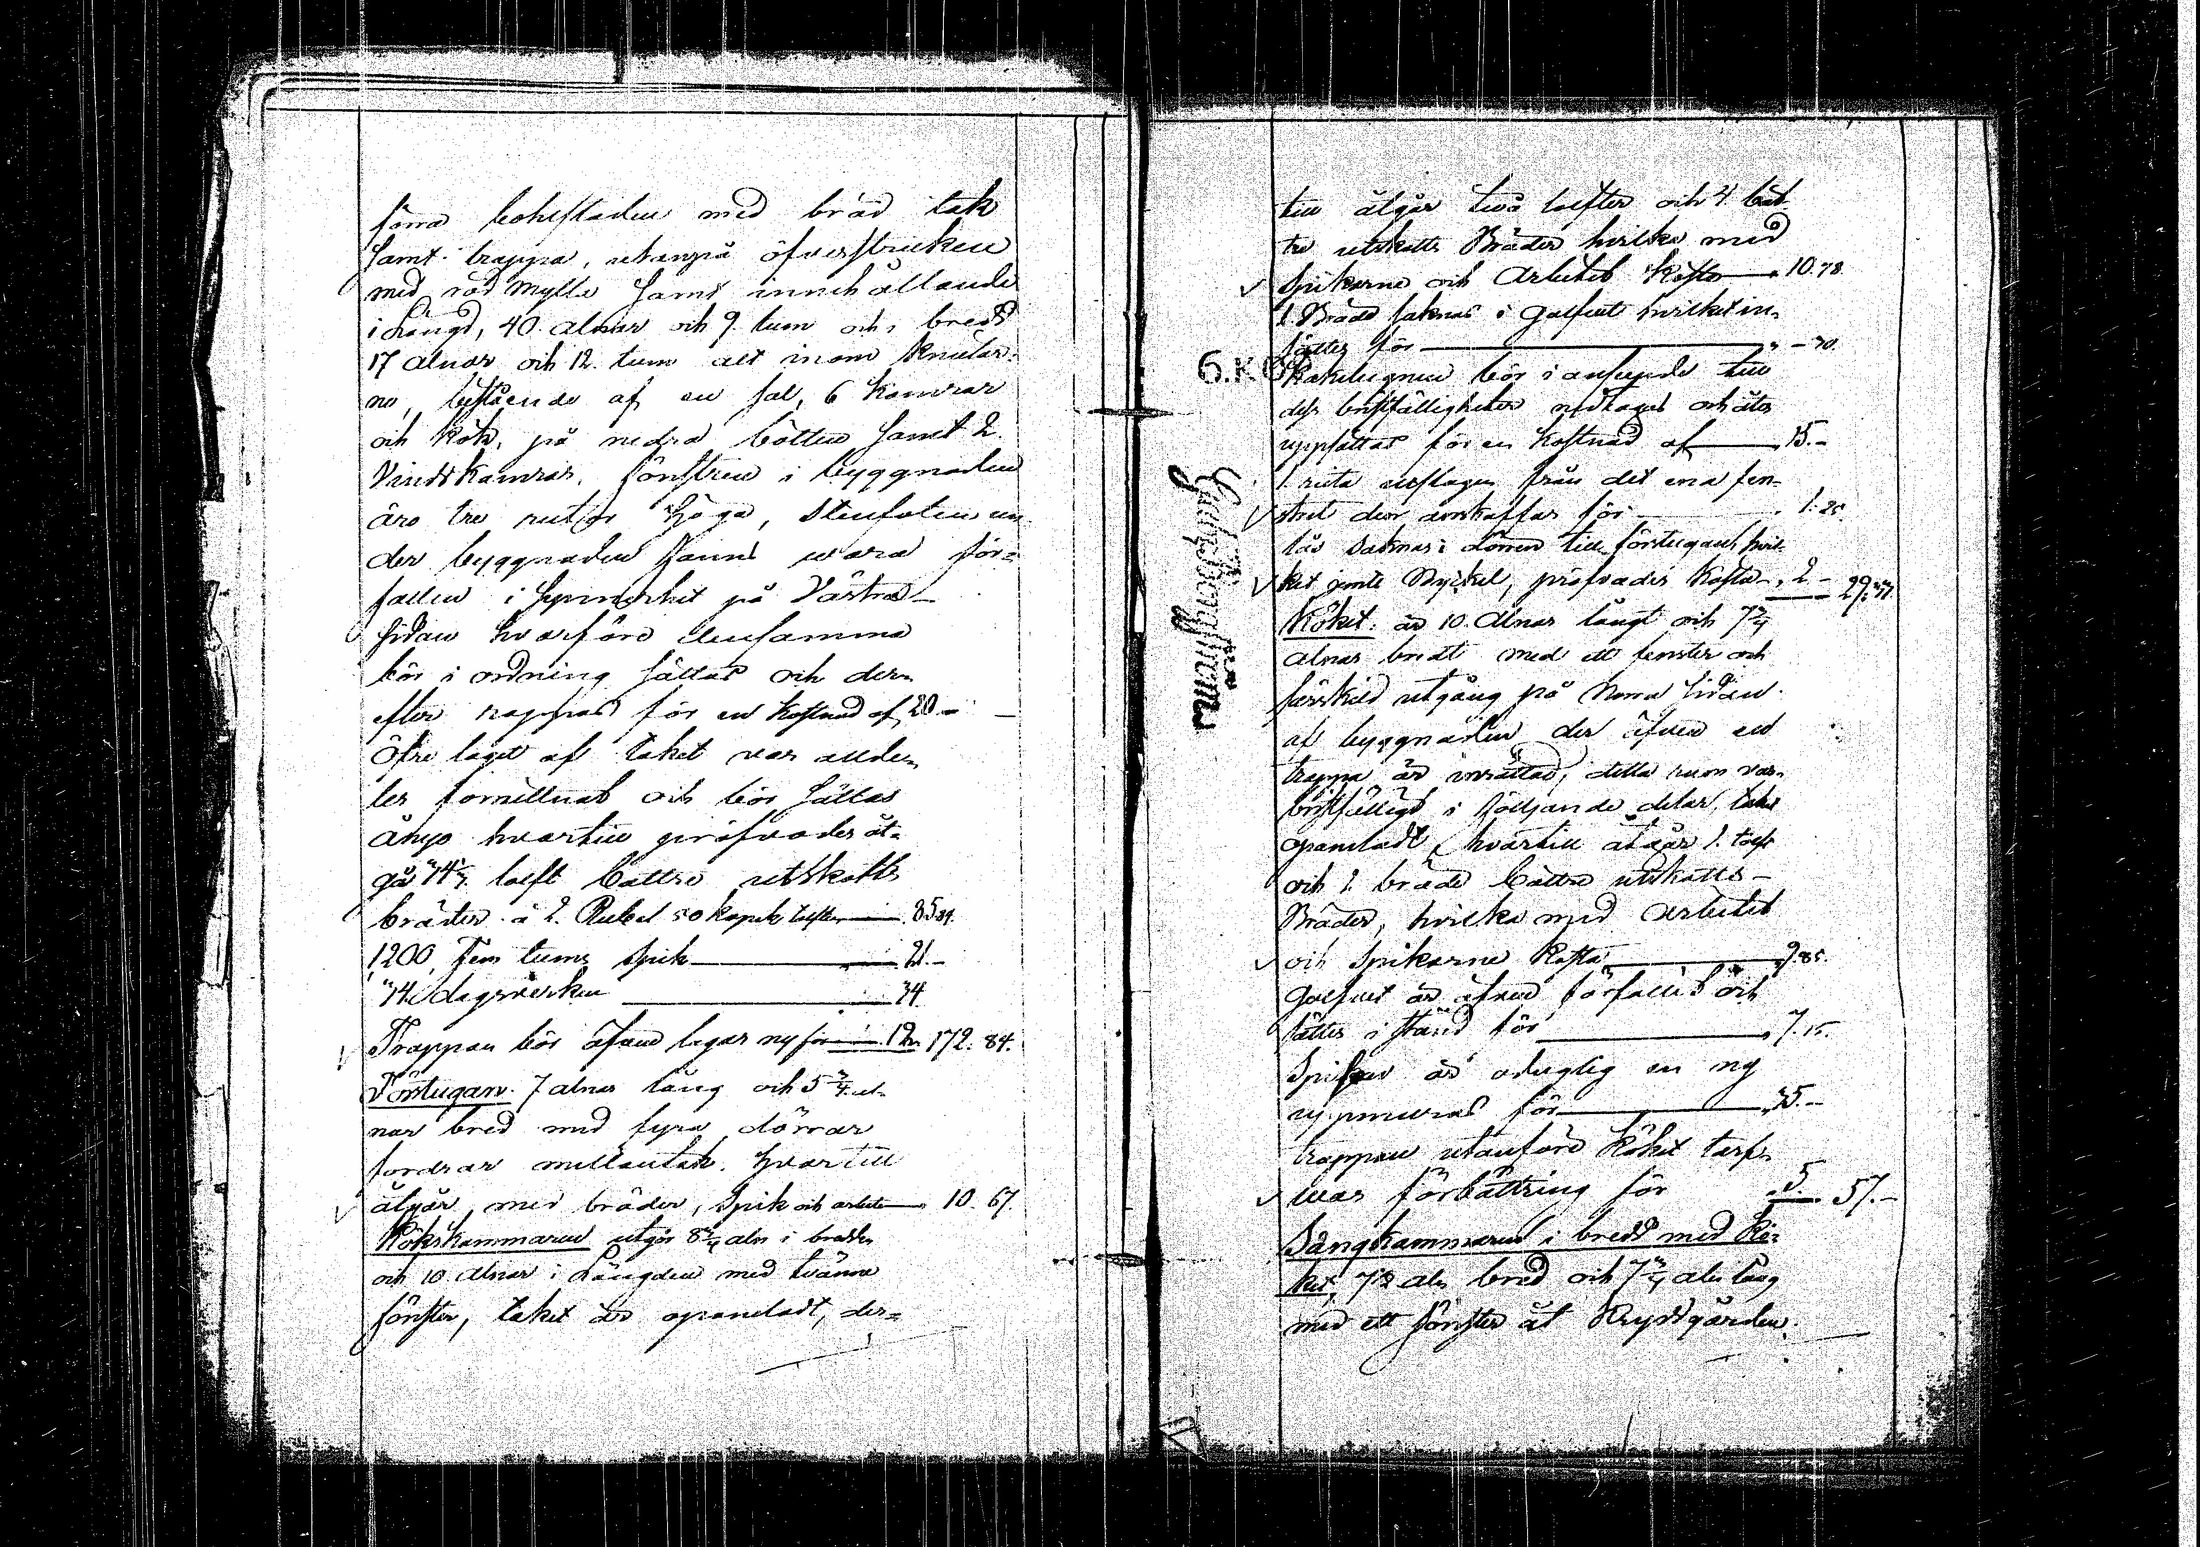 förra bohlstaden med bräd tak
samt trappa, utanpå öfverstruken
med röd mylla samt innehållande
i Längd, 40. alnar och 9. tum och i bredd
17 alnar och 12. tum alt inom knutar-
ne, bestående af en sal, 6 kamrar
och kök, på nedra botten samt 2.
Vindskamrar, fönstren i byggnaden
äro tre rutor höga, Stenfoten un
der byggnaden fanns wara för-
fallen i synnerhet på Västra
sidan hvarföre densamma
bör i ordning sättas och der-
efter rappas för en kostnad af 20 –
Öfre laget af taket var allde-
les förmultnat och bör sättas
å nyo hvartill pröfvades åt-
gå 34 tolft bättre utskotts
bräder à 2. Rubel 50 kopek tolften 85 84.
1200 Fem tums spik 21.–
34. dagsverken 34
Trappan bör äfven lagas ny för 12. 172. 84.
Förstugan. 7 alnar lång och 5 3/4 al-
nar bred med fyra dörrar
fordrar mellantak. hvartill
åtgår, med bräder, Spik och arbete 10. 67.
Kökskammaren utgör 8 3/4 aln i bredden
och 10. alnar i Längden med tvänne
fönster, taket är opaneladt, der-
till åtgår två tolfter och 4. bät-
tre utskotts Bräder hvilka med
Spikarne och Arbetet kosta 10.78.
1. Bräde saknas i Golfvet hvilket in-
sättes för – 30.
6.K
Kakelugnen bör i anseende till
dess bristfällighet nedtagas och åter
uppsättas för en kostnad af 15.–
1. ruta utslagen från det ena fen-
stret der anskaffas för 1. 25.
lås saknas i dörren till förstugan, hvil-
ket jemte Nyckel, pröfvades kosta 2 – 29. 33.
Köket: är 10. Alnar långt och 7 3/4
alnar bredt med ett fenster och
särskild utgång på Norra sidan
af byggnaden der äfven en
trappa är inrättad, detta rum var
bristfälligt i följande delar, taket
opaneladt, hvartill åtgår 1. tolft
och 1. bräde bättre utskotts-
Bräder, hvilka med arbetet
och Spikarne kosta 9.85.
Golfvet är äfven förfallet och
sättes i stånd för 7. 15.
Spiseln är oduglig en ny
uppmuras för 35.–
trappan utanföre köket tarf-
was förbättring för 5. 57.–
Sängkammaren i bredd med Kö-
ket, 7 1/2 aln bred och 7 3/4 aln lång
med ett fönster åt Krydgården.